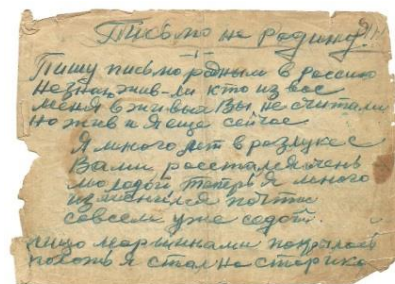 Письмо на родину.
-1-
Пишу письмо родным в россию
не знаю жив-ли кто из вас
меня в живых Вы не считали
но жив и я еще сейчас
Я много лет в разлуке с
Вами расстался очень
молодой теперь я много
изменился почти
совсем уже седой.
лицо морщинками покрылось
похож я стал на старика